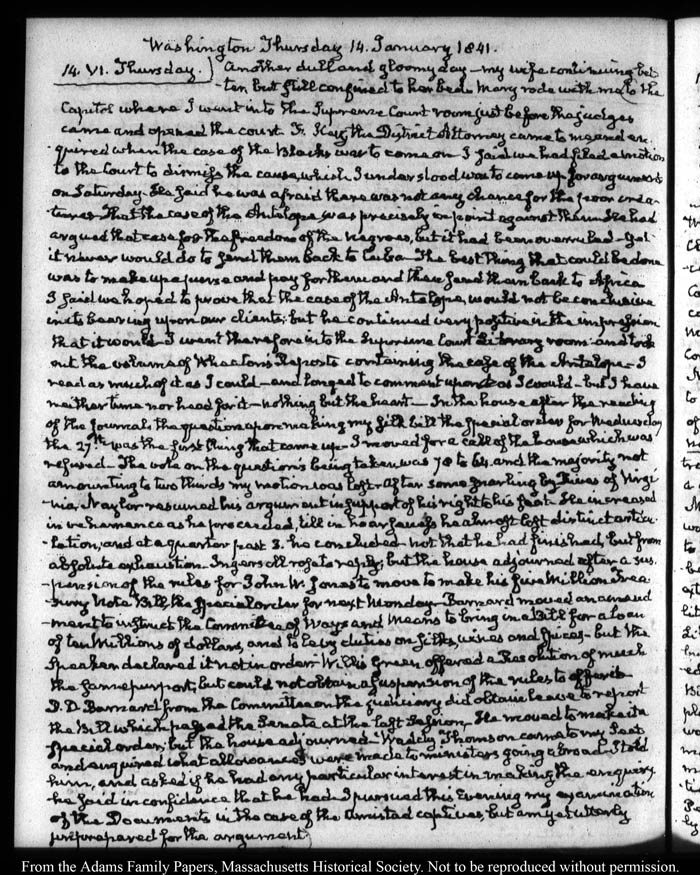 Washington Thursday 14. January 1841.
14. VI. Thursday.) Another dull and gloomy day — my wife continuing bet-
-ter, but still confined to her bed. Mary rode with me to the
Capitol where I went into the Supreme Court room just before the judges
came and opened the court. F. Key the District Attorney came to me and en-
-quired when the case of the Blacks was to come on. I said we had filed a motion
to the Court to dismiss the cause, which I understood was to come up for argument
on Saturday. He said he was afraid there was not any chance for the poor crea-
-tures. That the case of the Antelope was precisely in point against them. He had
argued that case for the freedom of the negroes, but it had been overruled. Yet
it never would do to send them back to Cuba. The best thing that could be done
was to make up a purse and pay for them and then send them back to Africa
I said we hoped to prove that the case of the Antelope, would not be conclusive
in its bearing upon our clients; but he continued very positive in the impression
that it would. I went therefore into the Supreme Court Library room and took
out the volume of Wheaton's Reports containing the case of the Antelope. I
read as much of it as I could — and longed to comment upon it as I would — but I have
neither time nor head for it — nothing but the heart. In the house after the reading
of the Journal, the question upon making my Silk bill the Special order for Wednesday
the 27th was the first thing that came up. I moved for a call of the house which was
refused. The vote on the question's being taken was 70 to 64 and the majority not
amounting to two thirds my motion was lost. After some snarling by Jones of Virgi-
-nia, Naylor resumed his argument in support of his right to his seat. He increased
in vehemence as he proceeded, till in hoarseness he almost lost distinct articu-
-lation, and at a quarter past 3. he concluded not that he had finished, but from
absolute exhaustion. Ingersoll rose to reply; but the house adjourned after a sus-
-pension of the rules for John W. Jones to move to make his five Million Trea-
-sury Note Bill the special order for next Monday. Barnard moved an amend-
-ment to instruct the Committee of Ways and Means to bring in a Bill for a loan
of ten Millions of dollars, and to levy duties on silks, wines and spices — but the
Speaker declared it not in order. Willis Green offered a Resolution of much
the same purport, but could not obtain a suspension of the rules to
D. D. Barnard from the Committee on the judiciary did obtain leave to report
the Bill which passed the Senate at the last Session. He moved to make it a
special order; but the house adjourned. Waddy Thomson came to my seat
and enquired what allowances were made to ministers going abroad. I told
him, and asked if he had any particular interest in making the enquiry.
he said in confidence that he had. I pursued this Evening my examination
of the Documents in the case of the Amistad captives, but am yet utterly
unprepared for the argument
From the Adams Family Papers, Massachusetts Historical Society. Not to be reproduced without permission.